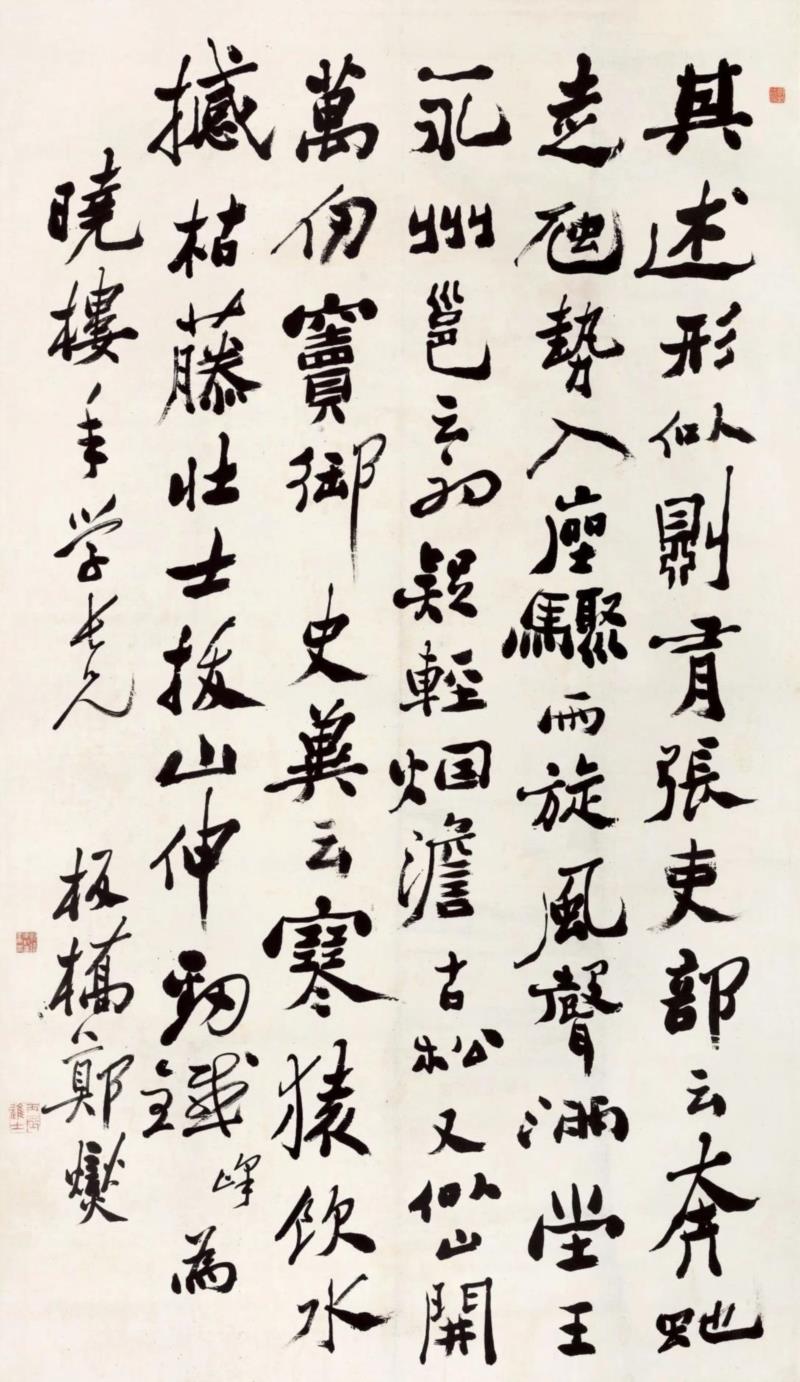 其述形似則有張吏部云奔虵
走虺勢入座驟雨旋風聲滿堂王
永州邕云初疑輕烟澹古松又似山開
萬仞竇御史冀云寒猿飲水
撼枯藤壯士拔山伸勁鐵 峰 為
曉樓年学長兄 板橋鄭燮